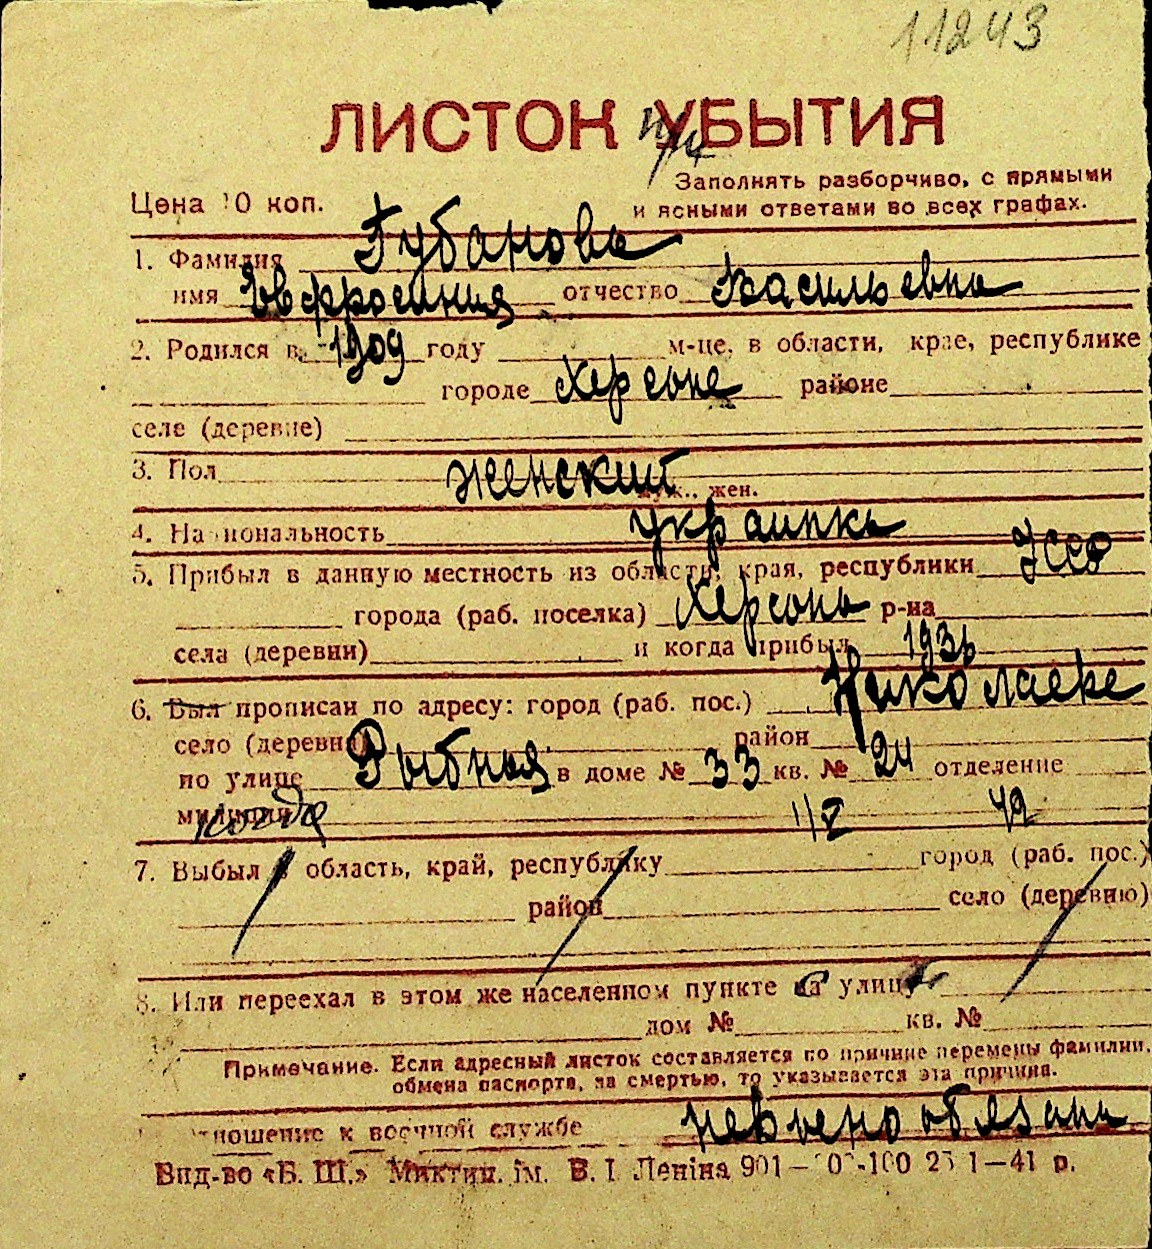 11243
ЛИСТОК УБЫТИЯ
Заполнять разборчиво, с прямыми
Цена 10 коп.
и ясными ответами во всех графах.
1. Фамилия Губанова
имя Евфросиния отчество Васильевна
2. Родился в 1909 году м-це, в области, крае, республике
городе Херсоне районе
селе (деревне)
3. Пол женский муж., жен.
4. Национальность украинка
5. Прибыл в данную местность из области, края, республики УССР
города (раб. поселка) Херсона р-на
села (деревни) и когда прибыл 1936
6. Был прописан по адресу: город (раб. пос.) Николаеве
село (деревня) район
по улице Рыбная в доме № 33 кв. № 24 отделение
милиции когда 1/V 42
7. Выбыл в область, край, республику город (раб. пос.)
район село (деревню)
8. Или переехал в этом же населенном пункте на улицу
дом № кв. №
Примечание. Если адресный листок составляется по причине перемены фамилии,
обмена паспорта, за смертью, то указывается эта причина.
Отношение к военной службе невоенообязана
Вид-во «Б. Ш.» Миктип. ім. В. І. Леніна 901—
1—41 р.